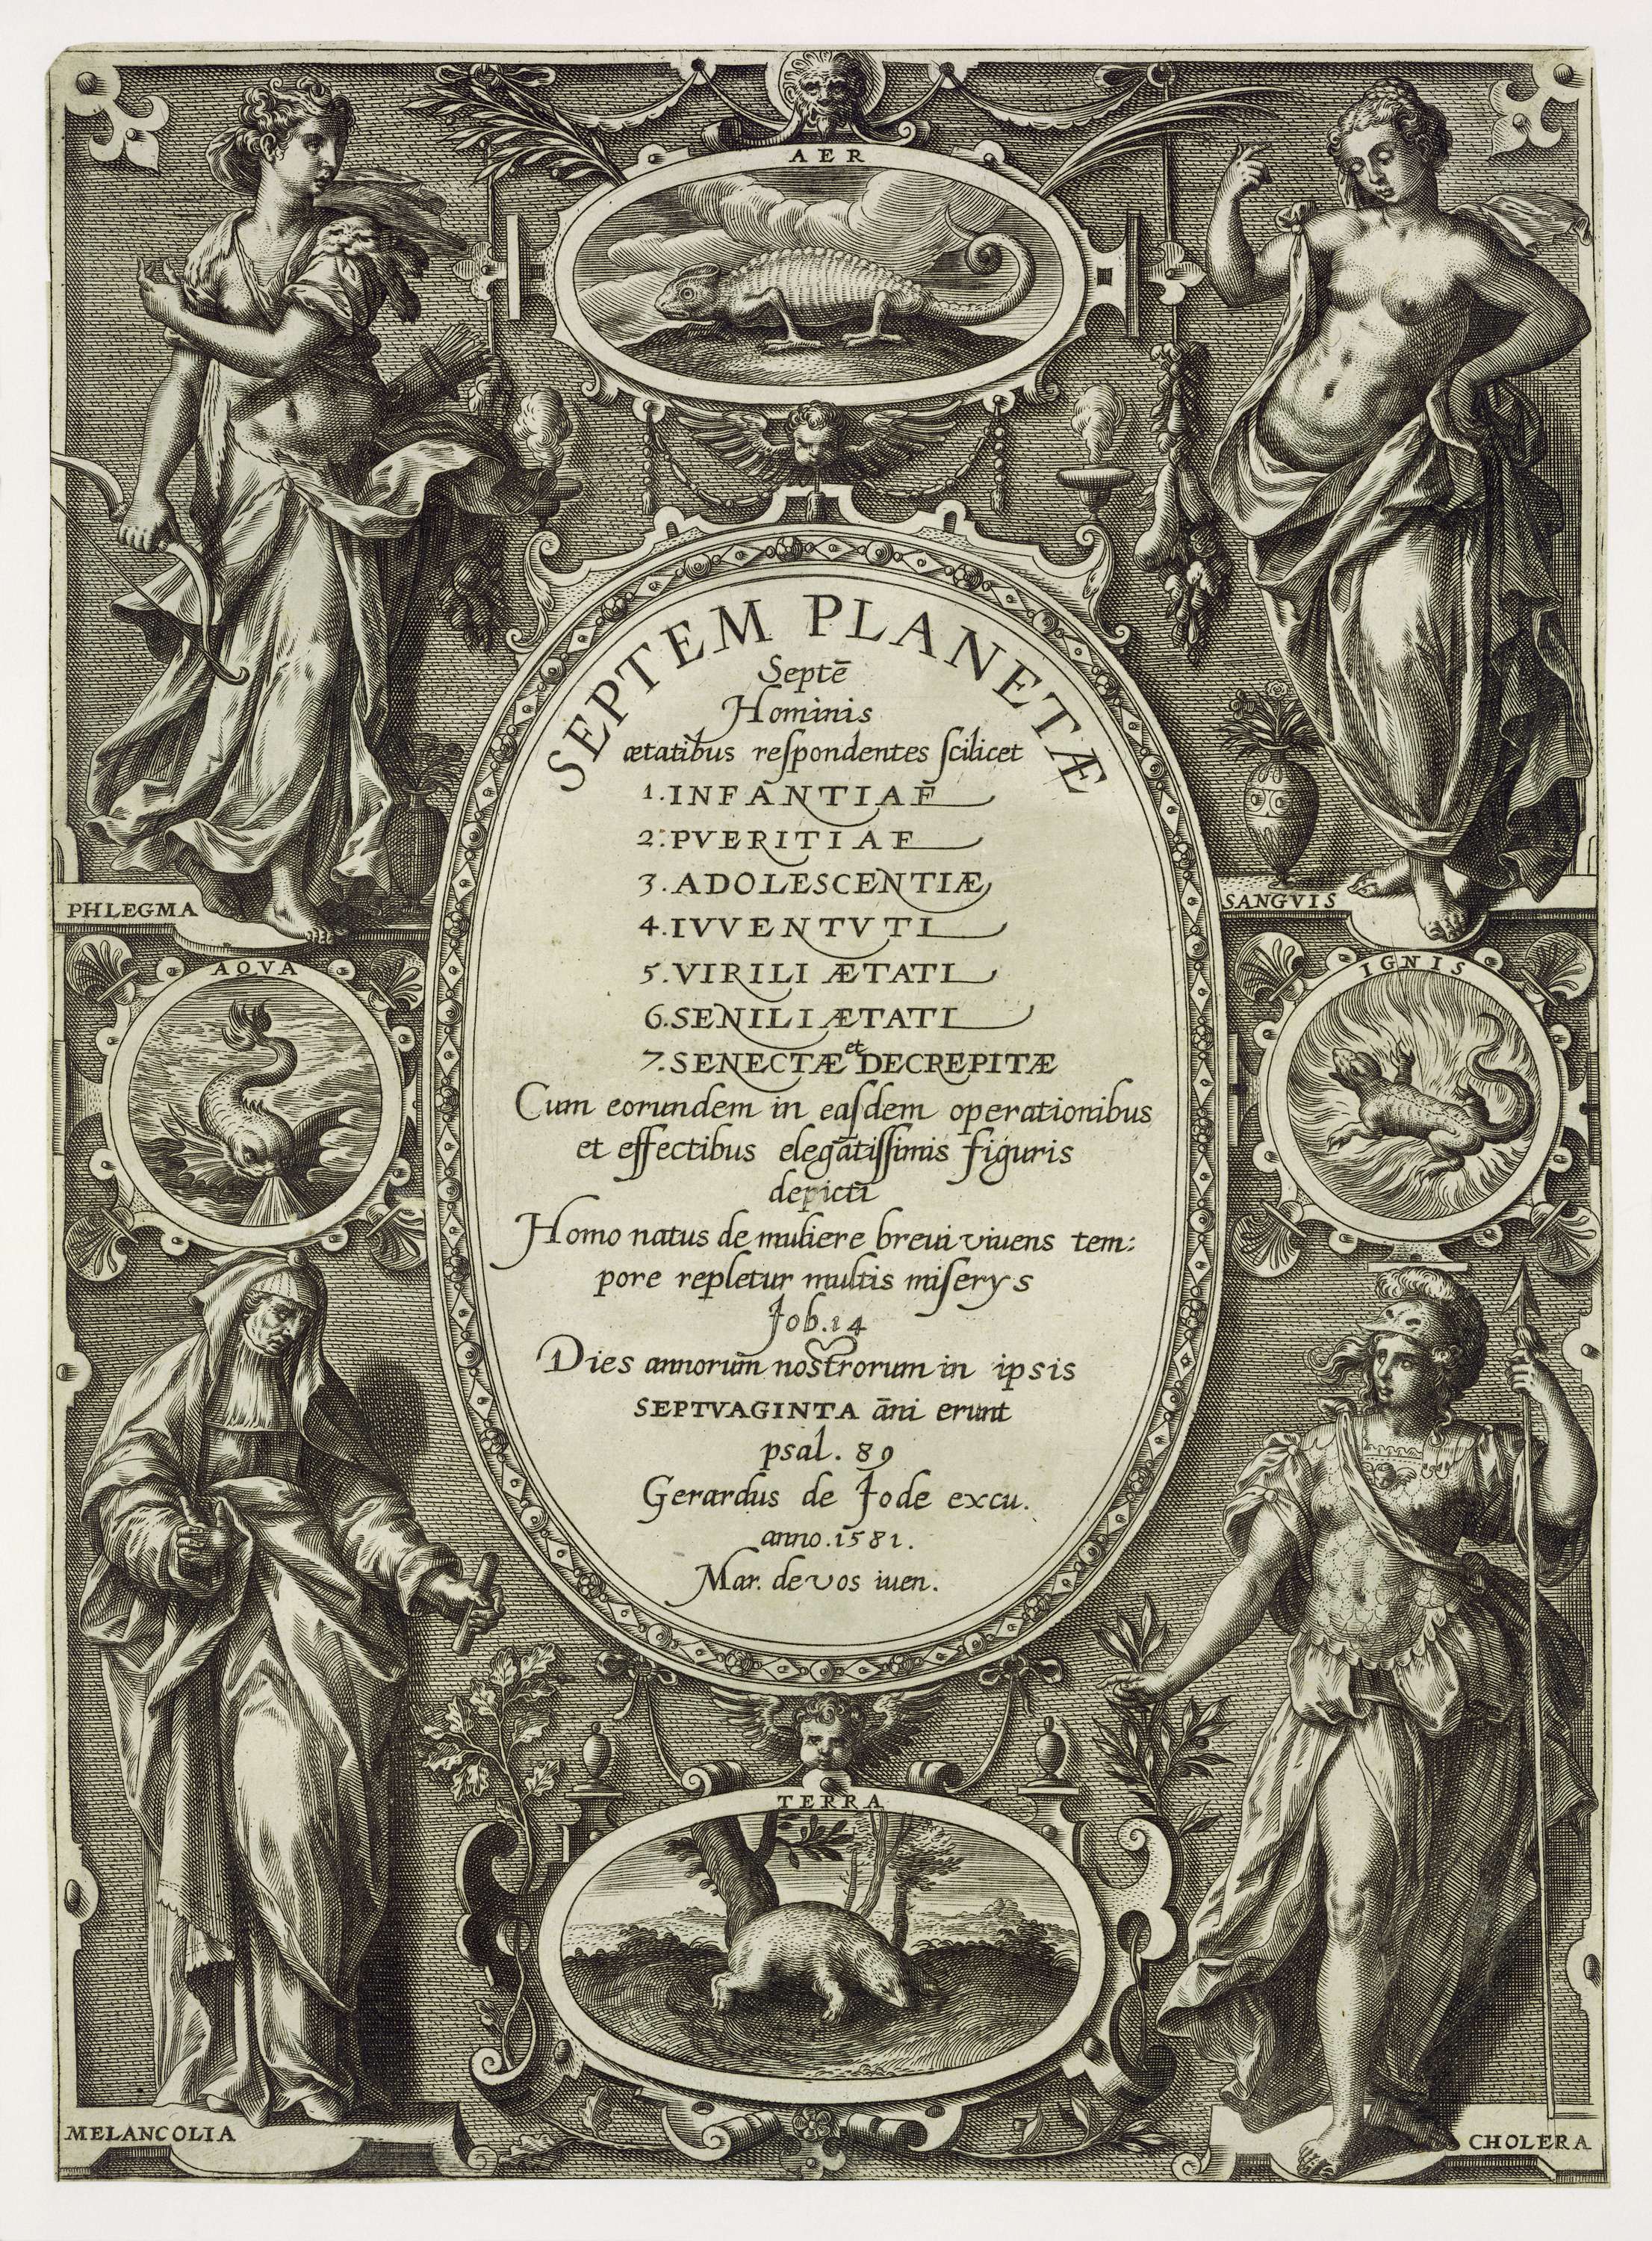 AER
SEPTEM PLANETÆ
Septē
Hominis
ætatibus reſpondentes ſcilicet
1. INFANTIAE
2. PVERITIAE
3. ADOLESCENTIÆ
4. IVVENTVTI
5. VIRILI ÆTATI
6. SENILI ÆTATI
7. SENECTÆ et DECREPITÆ
Cum eorundem in eaſdem operationibus
et effectibus elegātiſſimis figuris
depicti
Homo natus de muliere breui viuens tem:
pore repletur multis miſerys
Job. 14
Dies annorum nostrorum in ipsis
SEPTVAGINTA āni erunt
psal. 89
Gerardus de Jode excu.
anno. 1581.
Mar. de vos inen.
PHLEGMA
SANGVIS
AQVA
IGNIS
TERRA
MELANCOLIA
CHOLERA